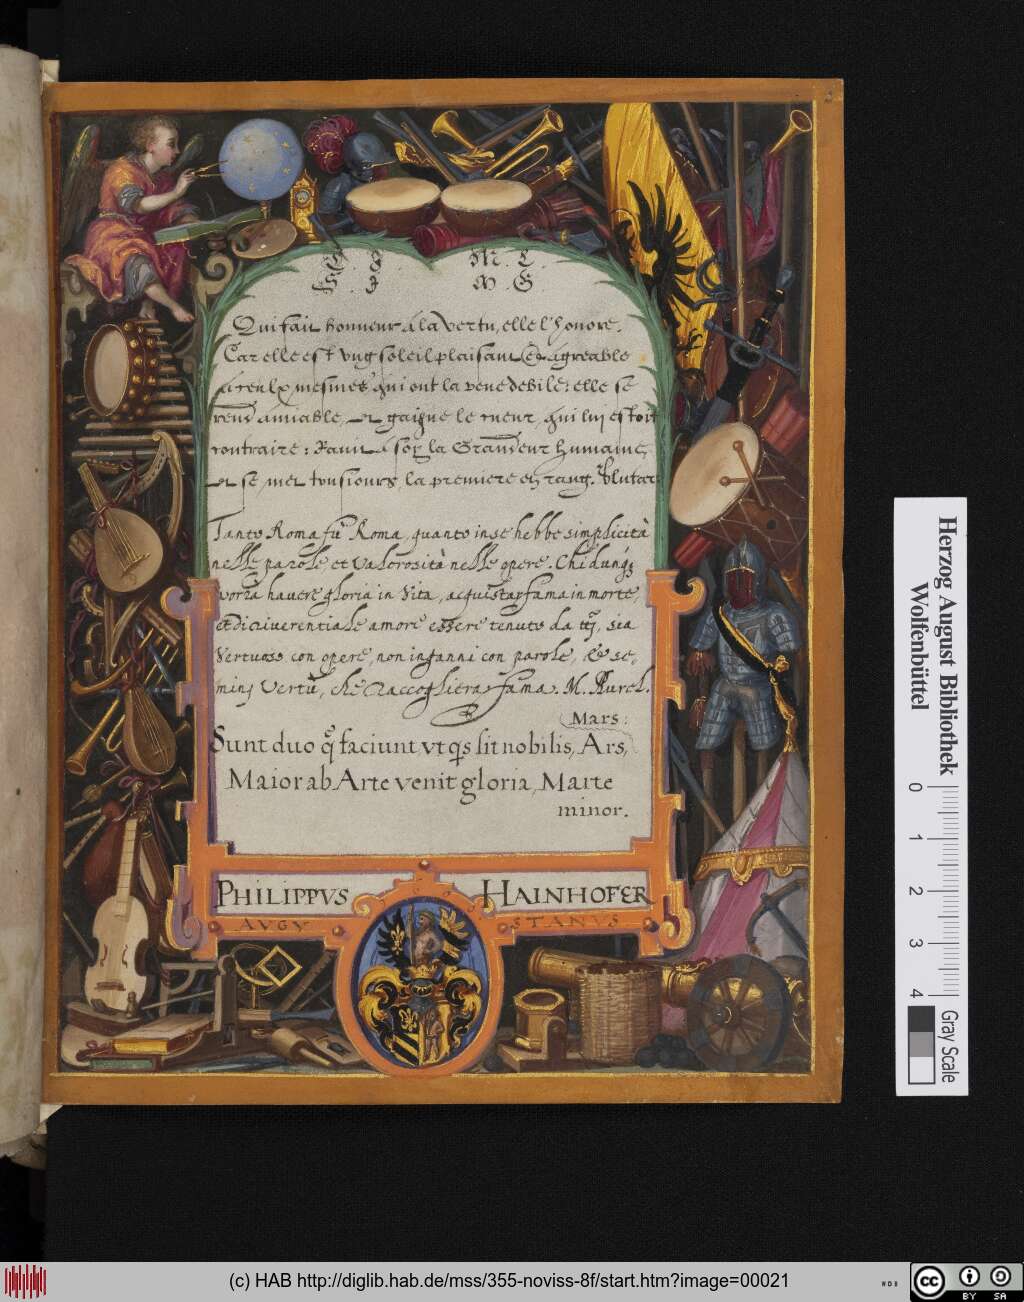 M. C.
M. G.
Qui fait honneur à la vertu, elle l'honore.
Car elle est ung soleil plaisant & agreable
à ceulx mesmes qui ont la veue debile: elle se
rend amiable, et gaigne le cueur, qui luy estoit
contraire: Ravit à soy la Grandeur humaine,
et se met tousiours la premiere en rang. Plutar:
Tanto Roma fù Roma, quanto in se hebbe simplicità
nelle parole et Valorosità nelle opere. Chi dunq3
vorrà havere gloria in Vita, acquistar fama in morte,
et di riverentiale amore essere tenuto da tutti, sia
Vertuoso con opere, non inganni con parole, & se,
minj Vertù, che raccogliera fama. M. Aurel.
Mars:
Sunt duo q̃ faciunt vt qs sit nobilis, Ars,
Maior ab Arte venit gloria, Marte
minor.
PHILIPPVS HAINHOFER
AVGV STANVS
Herzog August Bibliothek
Wolfenbüttel
0 1 2 3 4
Gray Scale
(c) HAB http://diglib.hab.de/mss/355-noviss-8f/start.htm?image=00021
WDB
cc
BY SA